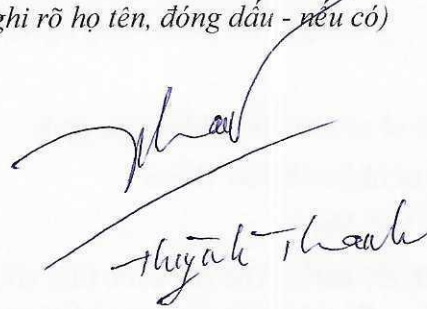 ghi rõ họ tên, đóng dấu - nếu có)
Huỳnh Thanh